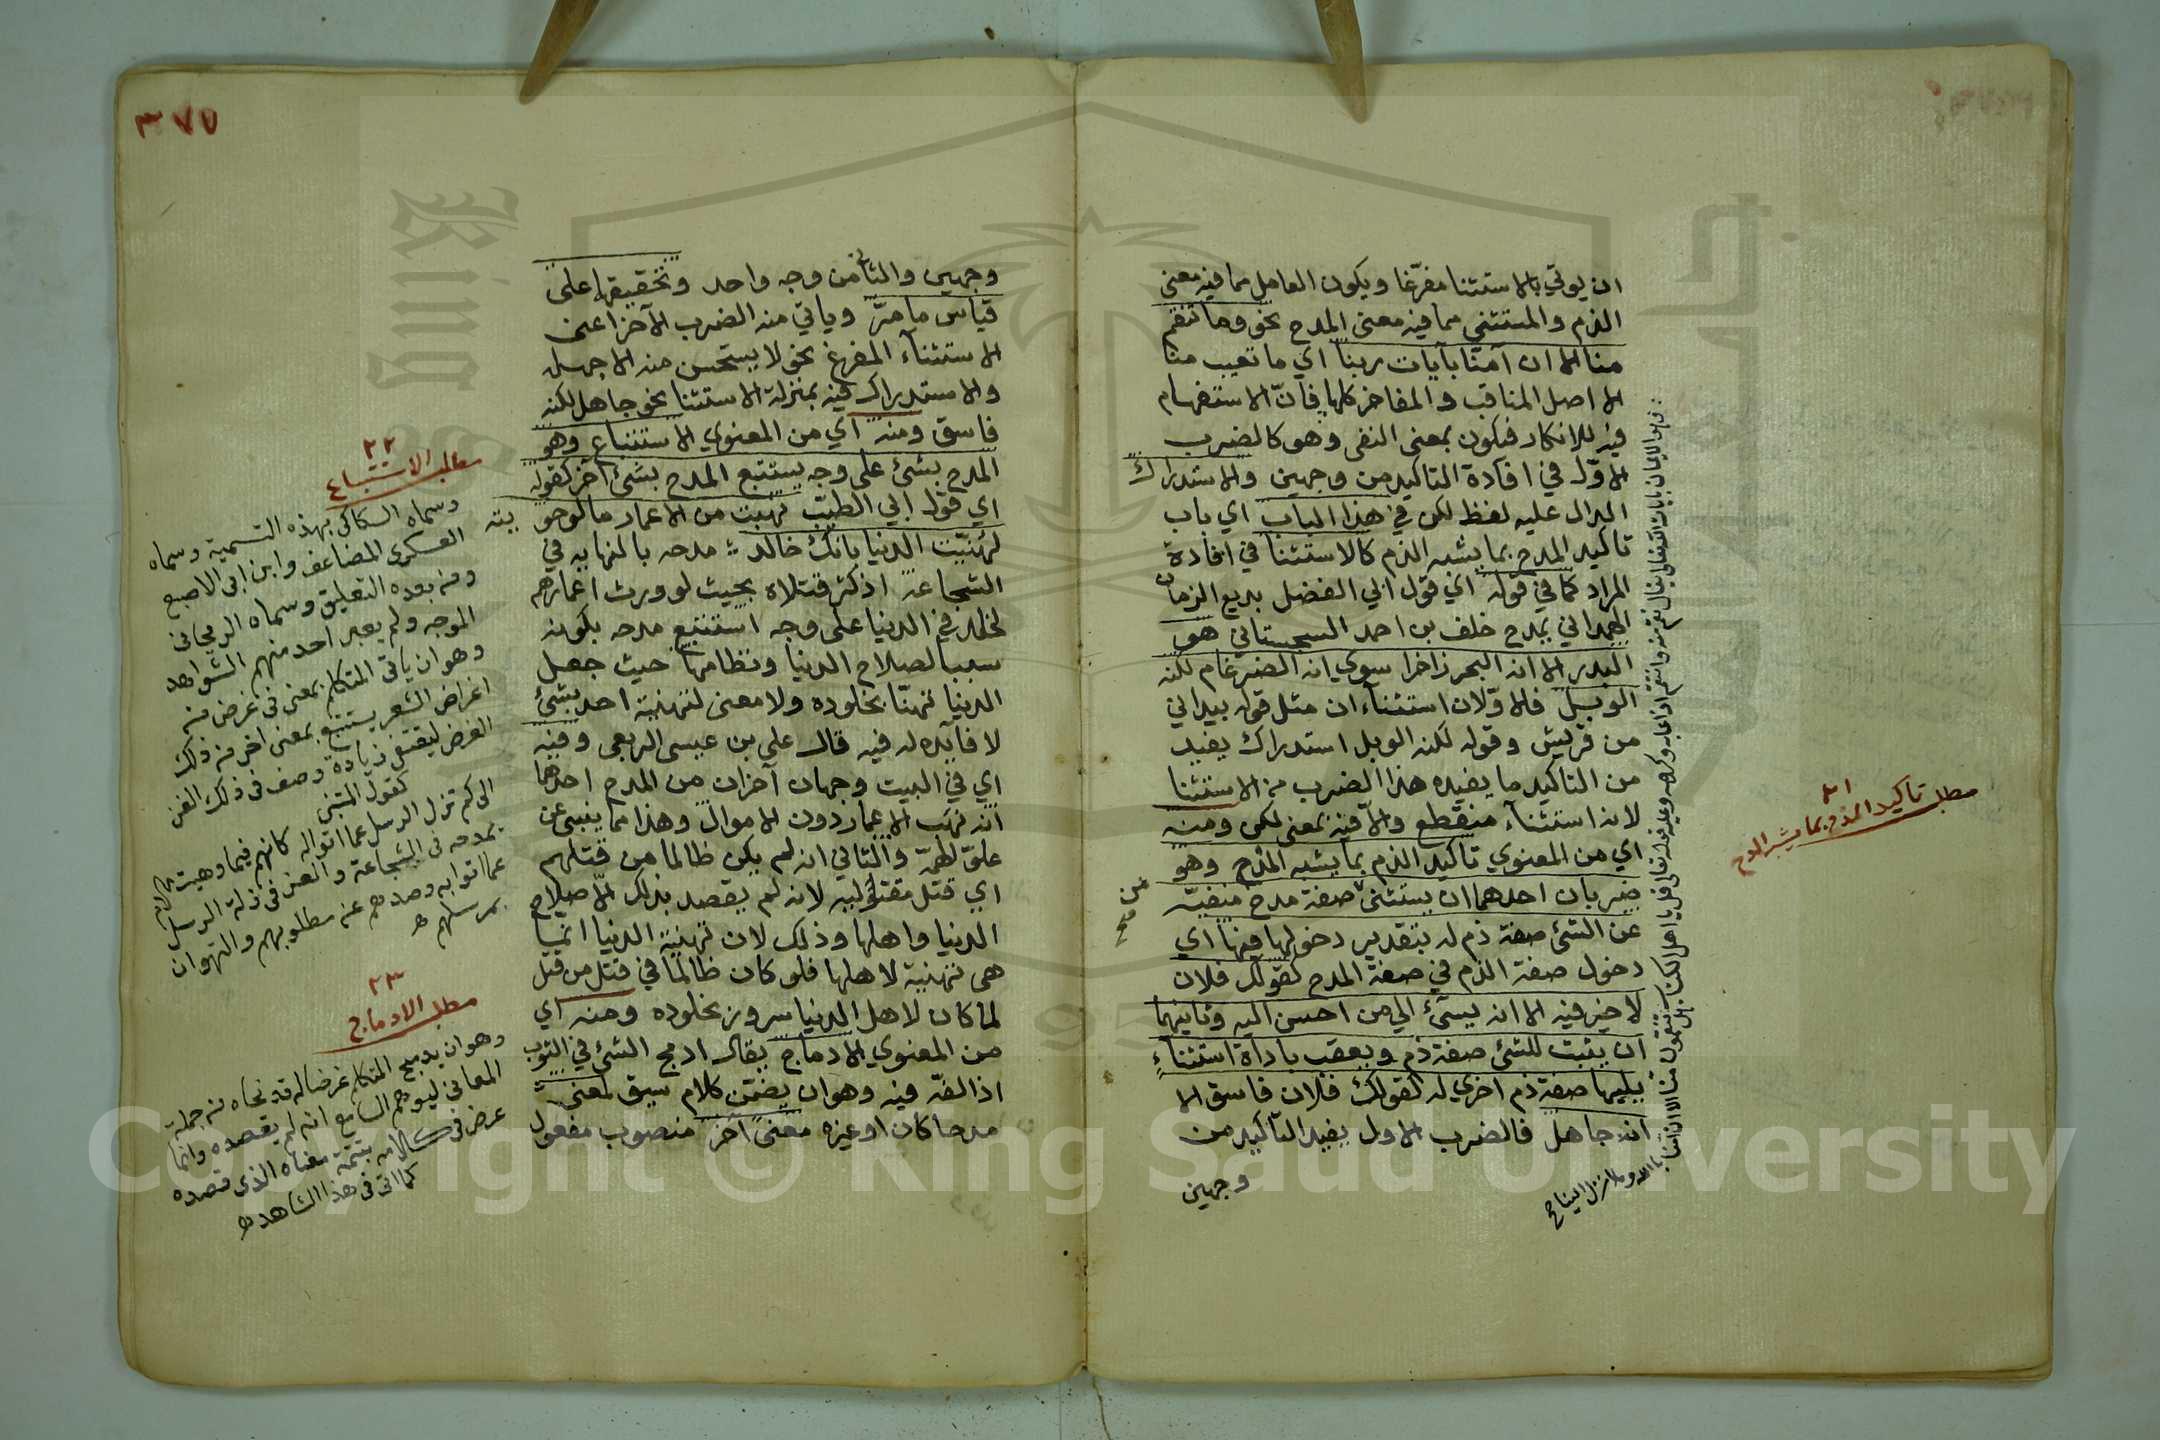 ان يوتي بالاستثنا مفرّغا ويكون العامل مما فيه معنى
الذم والمستثني مما فيه معنى المدح نحو وما تنقم
منا الا ان آمنّا بآيات ربنا اي ما تعيب منا
الا اصل المناقب والمفاخر كلها فانّ الاستفهام
فيه للانكار فيكون بمعنى النفى وهو كالضرب
الاوّل في افادة التاكيد من وجهين والاستدراك
الدال عليه لفظ لكن في هذا الباب اي باب
تاكيد المدح بما يشبه الذم كالاستثنا في افادة
المراد كما في قوله اي قول ابي الفضل بديع الزمان
الهمداني يمدح خلف بن احمد السجستاني هو
البدر الا انه البحر زاخرا سوي انه الضرغام لكنه
الوبل فالاوّلان استثناءان مثل قوله بيداني
من قريش وقوله لكنه الوبل استدراك يفيد
من التاكيد ما يفيده هذا الضرب من الاستثنا
لانه استثناء منقطع والا فيه بمعنى لكن ومنه
اي من المعنوي تاكيد الذم بما يشبه المدح وهو
ضربان احدهما ان يستثنى صفة مدح منفيّة
من
عن الشئ صفة ذم له بتقدير دخولها فيها اي
دخول صفة الذم في صفة المدح كقولك فلان
لا خير فيه الا انه يسيّء الي من احسن اليه وثانيهما
ان يثبت للشئ صفة ذم ويعقب باداة استثناء
يليها صفة ذم اخري له كقولك فلان فاسق الا
انه جاهل فالضرب الاول يفيد التاكيد من
وجهين
مطلب تاكيد الذم بما يشبه المدح
٣٧٥
وجهين والثاني من وجه واحد وتحقيقها على
قياس ما مرّ وياتي منه الضرب الآخر اعنى
الاستثناء المفرغ نحو لا يستحسن منه الا جهله
والاستدراك فيه بمنزلة الاستثنا نحو جاهل لكنه
فاسق ومنه اي من المعنوي الاستتباع وهو
المدح بشئ على وجه يستتبع المدح بشئ آخر كقوله
اي قول ابي الطيّب نهبت من الاعمار ما لو حويته
لهنّيّت الدنيا بانك خالد مدحه بالنهابه في
الشجاعة اذ كثر قتلاه بحيث لو ورث اعمارهم
لخلد في الدنيا على وجه استتبع مدحه بكونه
سببا لصلاح الدنيا ونظامها حيث جعل
الدنيا تهنّا بخلوده ولا معنى لتهنية احد بشئ
لا فايده له فيه قال علي بن عيسى الربعي وفيه
اي في البيت وجهان آخران من المدح احدهما
انه نهب الاعمار دون الاموال وهذا مما ينبئ عن
علوّ الهمّة والثاني انه لم يكن ظالما من قتلهم
اي قتل مقتوليه لانه لم يقصد بذلك الّا صلاح
الدنيا واهلها وذلك لان تهنية الدنيا انّما
هى تهنية لاهلها فلو كان ظالما في قتل من قتل
لما كان لاهل الدنيا سرور بخلوده ومنه اي
من المعنوي الادماج يقال ادمج الشئ في الثوب
اذا لفّه فيه وهو ان يضمّن كلام سيق لمعنى
مدحا كان او غيره معنى آخر منصوب مفعول
٢٢
مطلب الاستتباع
وسماه السكاكى بهذه التسمية وسماه
العسكرى المضاعف وابن ابى الاصبع
ومن بعده التعليق وسماه الريحانى
الموجه ولم يعبر احد منهم الشواهد
وهو ان ياتى المتكلم بمعنى فى غرض من
اغراض الشعر يستتبع بمعنى اخر من ذلك
الغرض ليقتضى زيادة وصف فى ذلك الفن
كقول المتنبى
الى كم ترد الرسل عما اتوا له كانهم فيما وهبت ملام
يمدحه فى الشجاعة والعز فى ذلة الرسل
عما اتوا به وصدهم عن مطلوبهم والتهوان
بمرسلهم
٢٣
مطلب الادماج
وهو ان يدمج المتكلم غرضا له قد نحاه من جملة
المعانى ليوهم السامع انه لم يقصده وانما
عرض فى كلامه بتتمة معناه الذى قصده
كما اتى فى هذا الشاهد